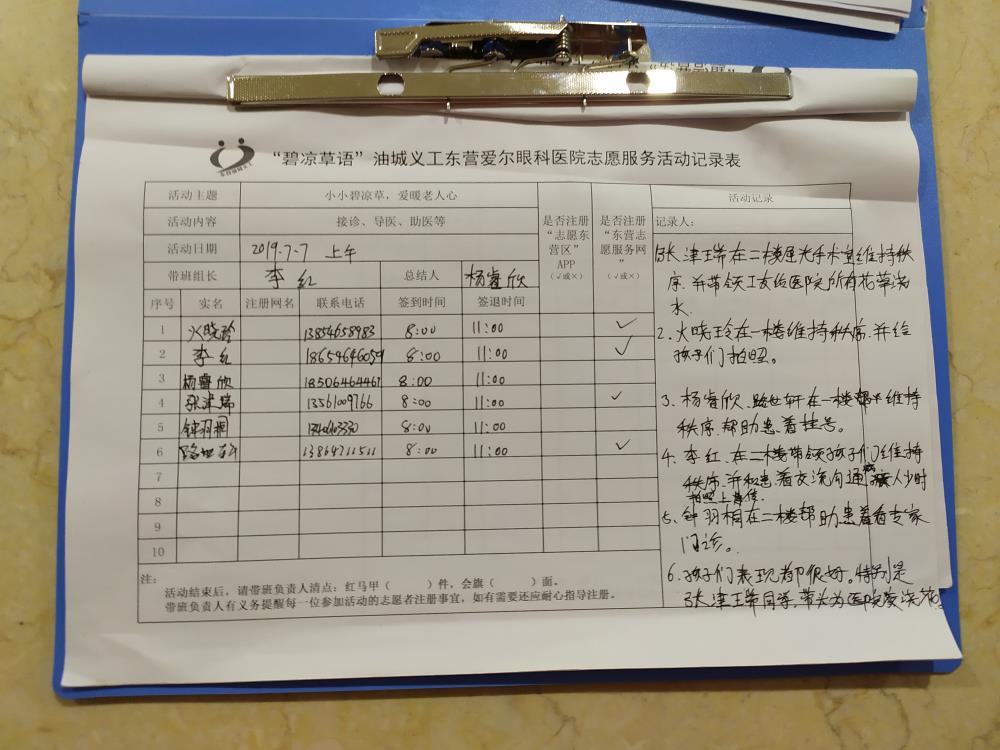 “碧凉草语”油城义工东营爱尔眼科医院志愿服务活动记录表
活动主题 小小碧凉草，爱暖老人心 是否注册“志愿东营区”APP（√或×） 是否注册“东营志愿服务网”（√或×） 活动记录
活动内容 接诊、导医、助医等 记录人：
活动日期 2019.7.7 上午
带班组长 李红 总结人 杨睿欣
序号 实名 注册网名 联系电话 签到时间 签退时间
1 火晓玲 13854658983 8:00 11:00 ✓
2 李红 18654646059 8:00 11:00 ✓
3 杨睿欣 18506464461 8:00 11:00
4 张津瑞 13561009766 8:00 11:00 ✓
5 钟羽桐 8:00 11:00
6 路世轩 13864711511 8:00 11:00 ✓
7
8
9
10
注：
活动结束后，请带班负责人清点：红马甲（ ）件，会旗（ ）面。
带班负责人有义务提醒每一位参加活动的志愿者注册事宜，如有需要还应耐心指导注册。
张津 在二楼 手术室维持秩
序.并带领工友给医院所有花草浇
水.
2.火晓玲在一楼维持秩序.并给
孩子们拍照。
3.杨睿欣.路世轩在一楼帮 维持
秩序.帮助患者挂号。
4.李红.在二楼带领孩子们维持
秩序.并和患者交流沟通 人少时
拍照上传.
5.钟羽桐在二楼帮助患者看专家
门诊。
6.孩子们表现都很好。特别是
张津 同学.带头为医院 浇花。